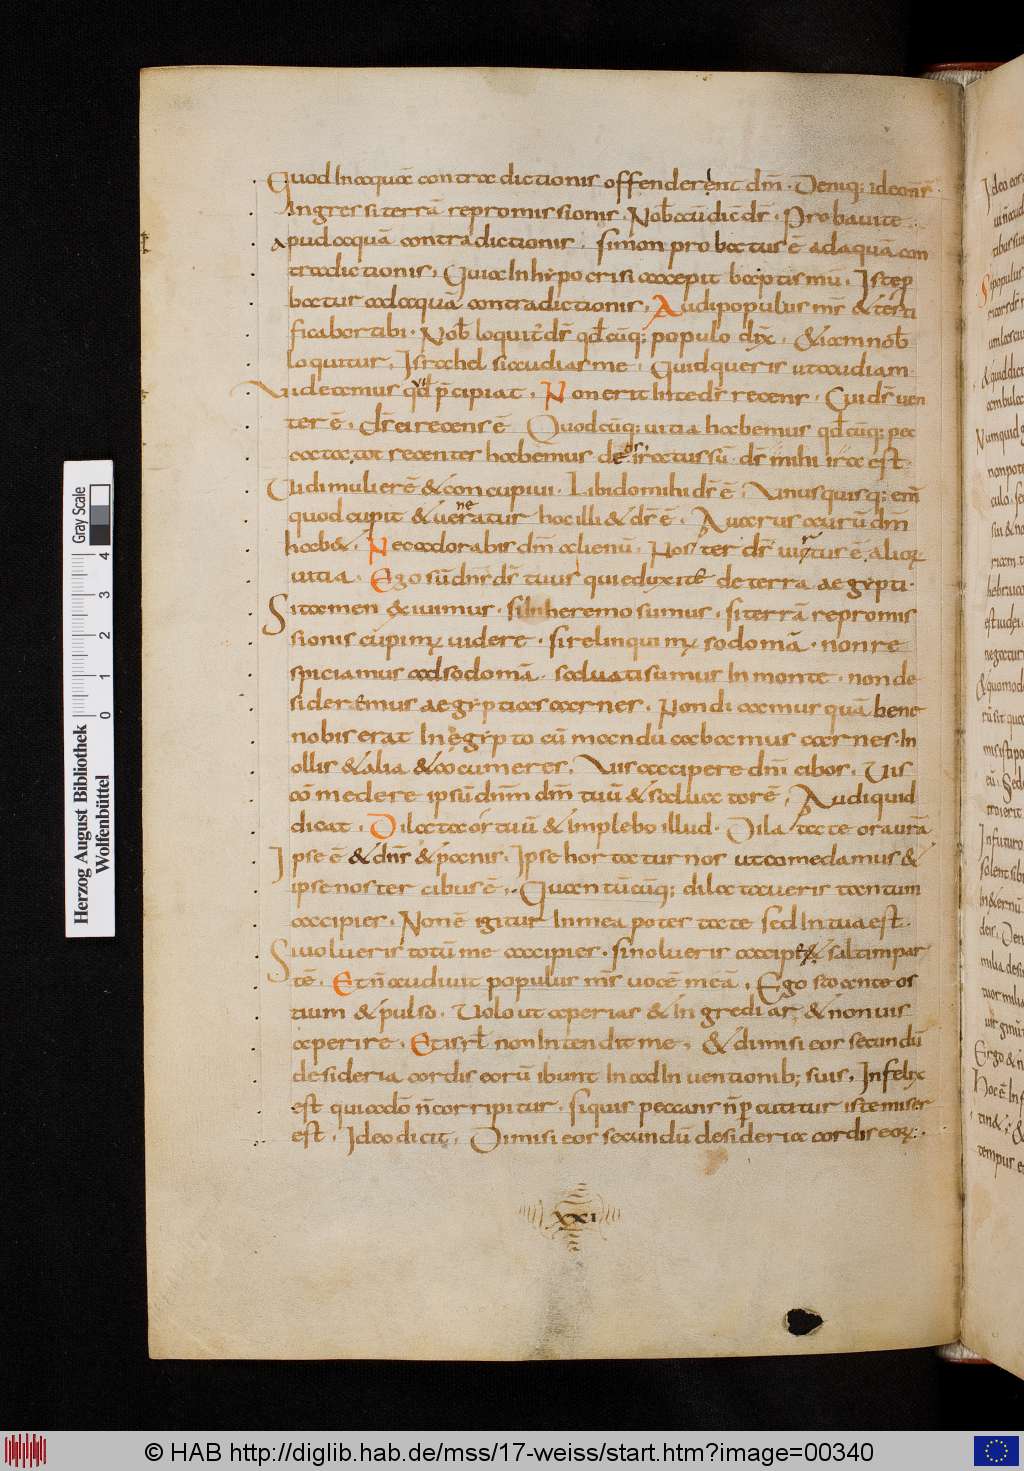 Quod In aqua contradictionis offenderent dm̄. Deniq; ideo nr̄
Ingressi terrā repromissionis. Nob̄ aū dic̄ dr̄. Probavi te
apud aquā contradictionis. simon probatus ē ad aquā con
tradictionis. Quia In hypocrisi accepit baptismū. Iste p
batur ad aquā contradictionis. Audi populus mr̄ & testi
ficabor tibi. Nob̄ loquit̄ dr̄ qd̄cūq; populo dix̄. & iam nob̄
loquitur. Israhel si audias me. Quid queris ut audiam
Videamus qd̄ p̄cipiat. Non erit In te dr̄ recens. Cui dr̄ uen
ter ē. dr̄ ei recens ē. Quodcūq; uitia habemus qd̄cūq; pec
cata tot recenter habemus dēos. iratus sū. dr̄ mihi ira est.
Uidi mulierē & concupiui. Libido mihi dr̄ ē. Unusquisq; em̄
quod cupit & ueneratur hoc illi & dr̄ ē. Auarus aurū dm̄
habet. Nec adorabis dm̄ alienū. Noster dr̄ uirtus ē, alior̄
uitia. Ego sū dnr̄ dr̄ tuus qui eduxi tē de terra aegypti.
Si tamen exiuimus. si In heremo sumus. si terrā repromis
sionis cupimꝰ uidere. si relinquimꝰ sodomā. non re
spiciamus ad sodomā. saluati sumus In monte. non de
sideremus aegyptias carnes. Non dicamus quā bene
nobis erat In ęgypto cū manducabamus carnes. In
ollis & alia & cucumeres. Vis accipere dnī cibos. Uis
cōmedere ipsū dnm̄ dm̄ tuū & saluatorē. Audi quid
dicat. Dilata os tuū & implebo illud. Dilatate ora urā
Ipse ē & dnr̄ & panis. Ipse hortatur nos ut comedamus &
ipse noster cibus ē. Quantūcūq; dilataueris tantum
accipies. Non ē igitur In mea potestate sed In tua est.
Si uolueris totū me accipies. si nolueris accipe & saltim par
tē. Et n̄ audiuit populus mr̄ uocē meā. Ego sto ante os
tium & pulso. Uolo ut aperias & Ingrediar & non uis
aperire. Et isrl̄ non Intendit me. & dimisi eos secundū
desideria cordis eorū ibunt In adInuentionib; suis. Infelix
est qui ad o n̄ corripitur. si quis peccans n̄ pcutitur iste miser
est. Ideo dicit. Dimisi eos secundū desideria cordis eor̄.
XXI
Herzog August Bibliothek
Wolfenbüttel
Gray Scale
0 1 2 3 4
© HAB http://diglib.hab.de/mss/17-weiss/start.htm?image=00340